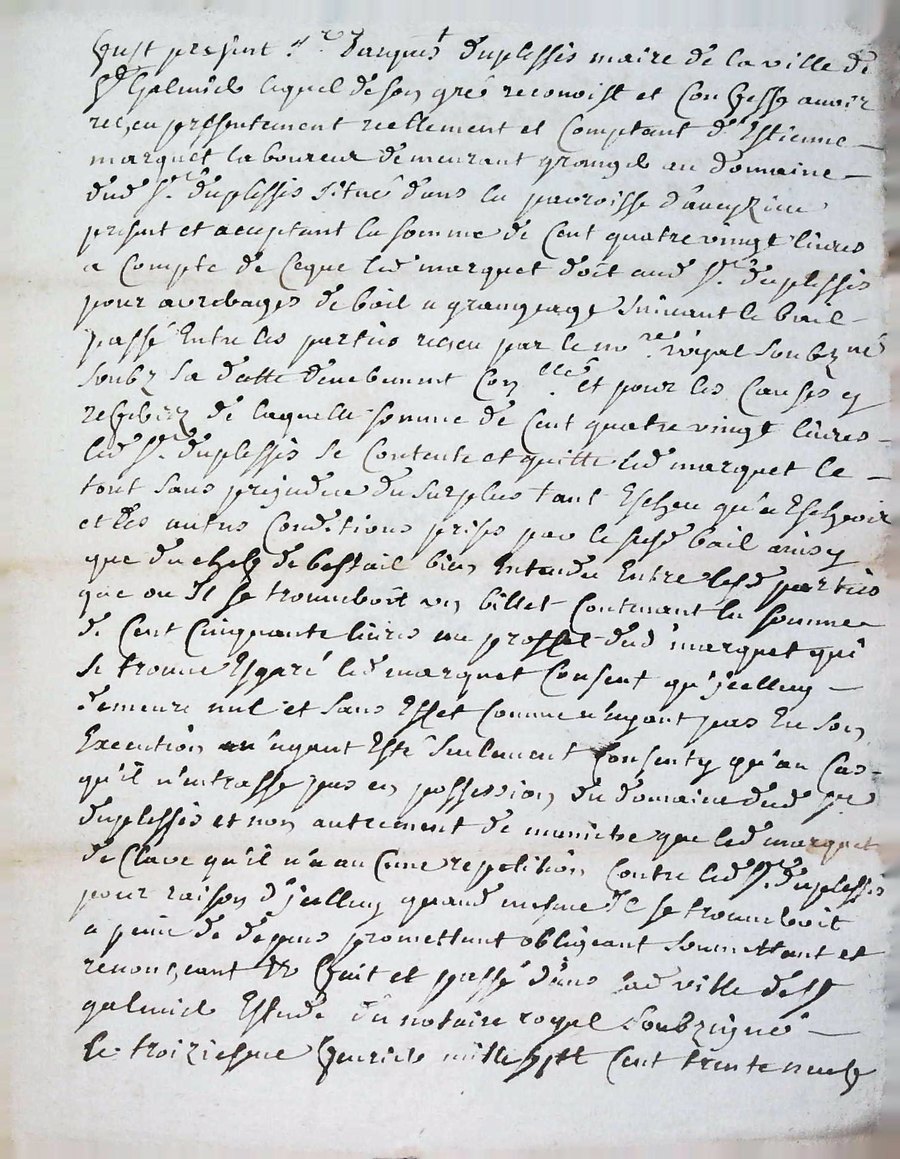 fust present Sr Jacques duplessis maire de la ville de
St Galmié lequel de son gré reconoist et Confesse avoir
receu présentement réellement et Comptant d'Estienne
marquet laboureur demeurant granger au domaine
dud Sr duplessis situé dans la parroisse
présent et aceptant la somme de Cent quatre vingt livres
a Compte de Ceque led marquet doit aud Sr duplessis
pour arrérages de bail a grangeage suivant le bail
passé Entre les parties receu par le nore royal soubzné
soubz sa datte deuebement Conllé et pour les Causes y
de laquelle somme de Cent quatre vingt livres
led Sr duplessis se Contente et quitte led marquet le
tout sans prejudice du surplus tant Escheu qu'a Escheoir
et des autres Conditions prises par le susd bail ainsy
que du chef de bestail bien Entendu Entre lesd parties
que ou Il se trouveroit un billet Contenant la somme
de Cent Cinquante livres au proffet dud marquet qui
se trouve Esgaré led marquet Consent qu'jcelluy
demeure nul et sans Effet Comme n'ayant pas Eu son
Execution n'ayant Esté seulement Consenty qu'au Cas
qu'il n'entrasse pas en possession du domaine dud Sr
duplessis et non autrement de manière que led marquet
de Clare qu'il n'a au Cune repetition Contre led Sr duplessis
pour raison d'jcelluy quand mesme Il se trouveroit
a peine de depens promettant obligeant soumettant et
renonçant &c fait et passé dans lad ville de St
galmié Estude du notaire royal soubzigné
le troiziesme febvrié mille sept Cent trente neuf